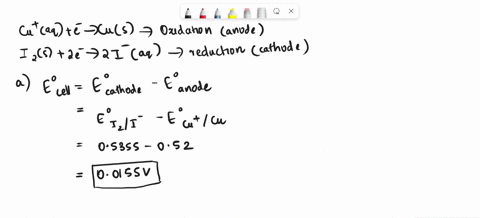 Cu⁺(aq)+e⁻→Cu(s) → Oxidation (anode)
I₂(s)+2e⁻→2I⁻(aq) → reduction (cathode)
a) E°cell = E°cathode - E°anode
= E°I₂/I⁻ - E°Cu⁺/Cu
= 0.5355-0.52
= 0.0155V